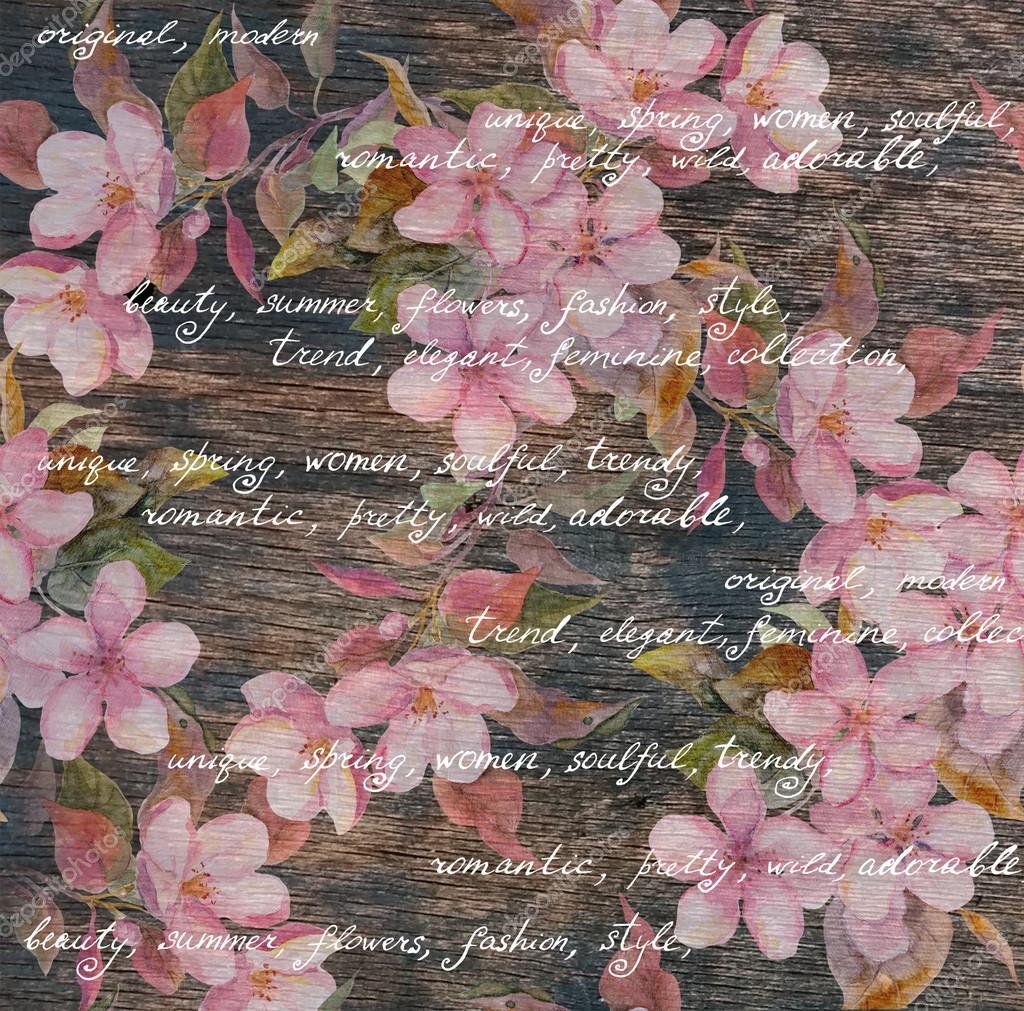 original, modern
unique, spring, women, soulful,
romantic, pretty, wild, adorable,
beauty, summer, flowers, fashion, style,
trend, elegant, feminine, collection,
unique, spring, women, soulful, trendy,
romantic, pretty, wild, adorable,
original, modern
trend, elegant, feminine, collec
unique, spring, women, soulful, trendy,
romantic, pretty, wild, adorable
beauty, summer, flowers, fashion, style,